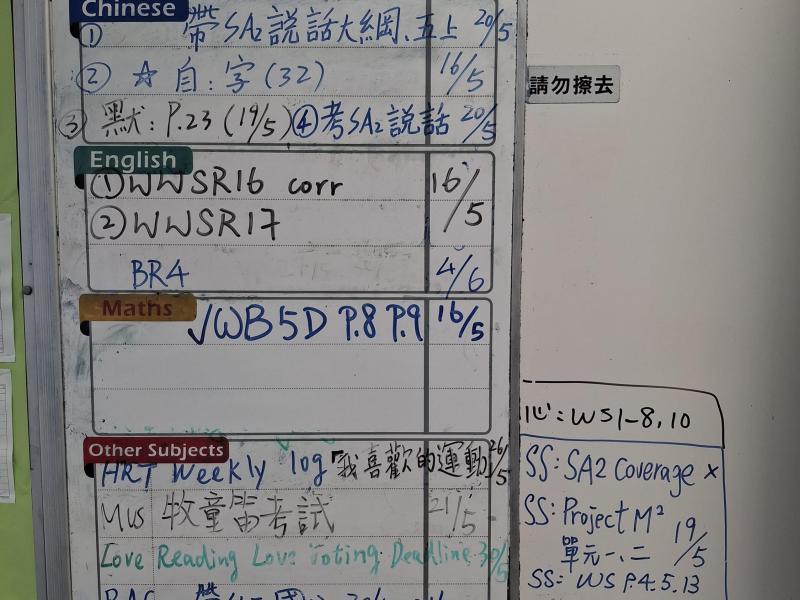 Chinese
① 帶SA2說話大綱、五上 20/5
② ☆ 自:字(32) 16/5
③ 默:P.23 (19/5) ④考SA2說話 20/5
English
① WWSR16 corr 16/5
② WWSR17
BR4 4/6
Maths
√WB5D P.8 P.9 16/5
Other Subjects
ART Weekly log「我喜歡的運動 26/5
Mus 牧童笛考試 21/5
Love Reading Love Voting Deadline 30/5
請勿擦去
心:WS1-8,10
SS:SA2 Coverage ×
SS:Project M²
單元一、二 19/5
SS: WS P.4.5.13